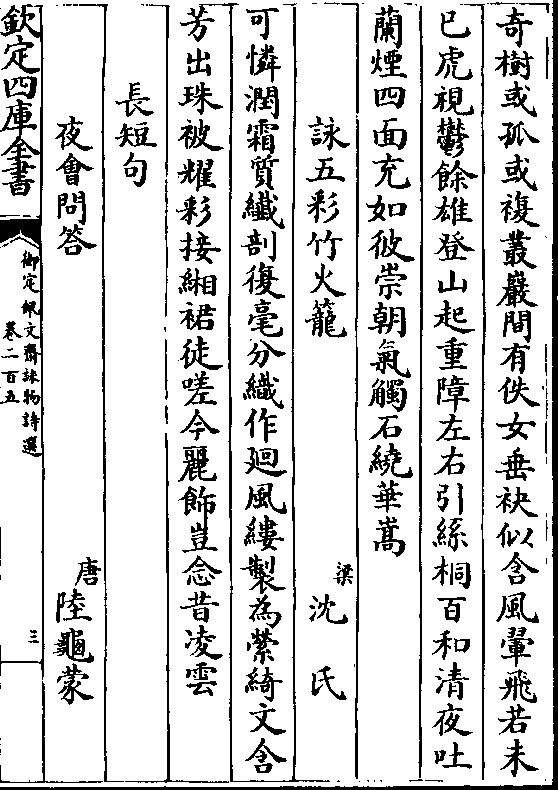 奇樹或孤或複叢巖間有佚女垂袂似含風翬飛若未
已虎視鬱餘雄登山起重障左右引絲桐百和清夜吐
蘭煙四面充如彼崇朝氣觸石繞華嵩
詠五彩竹火籠　梁沈氏
可憐潤霜質纖剖復毫分織作廻風縷製為縈綺文含
芳出珠被耀彩接緗裙徒嗟今麗飾豈念昔凌雲
長短句
夜會問答　唐陸龜蒙
欽定四庫全書
御定佩文齋詠物詩選
卷二百五
三